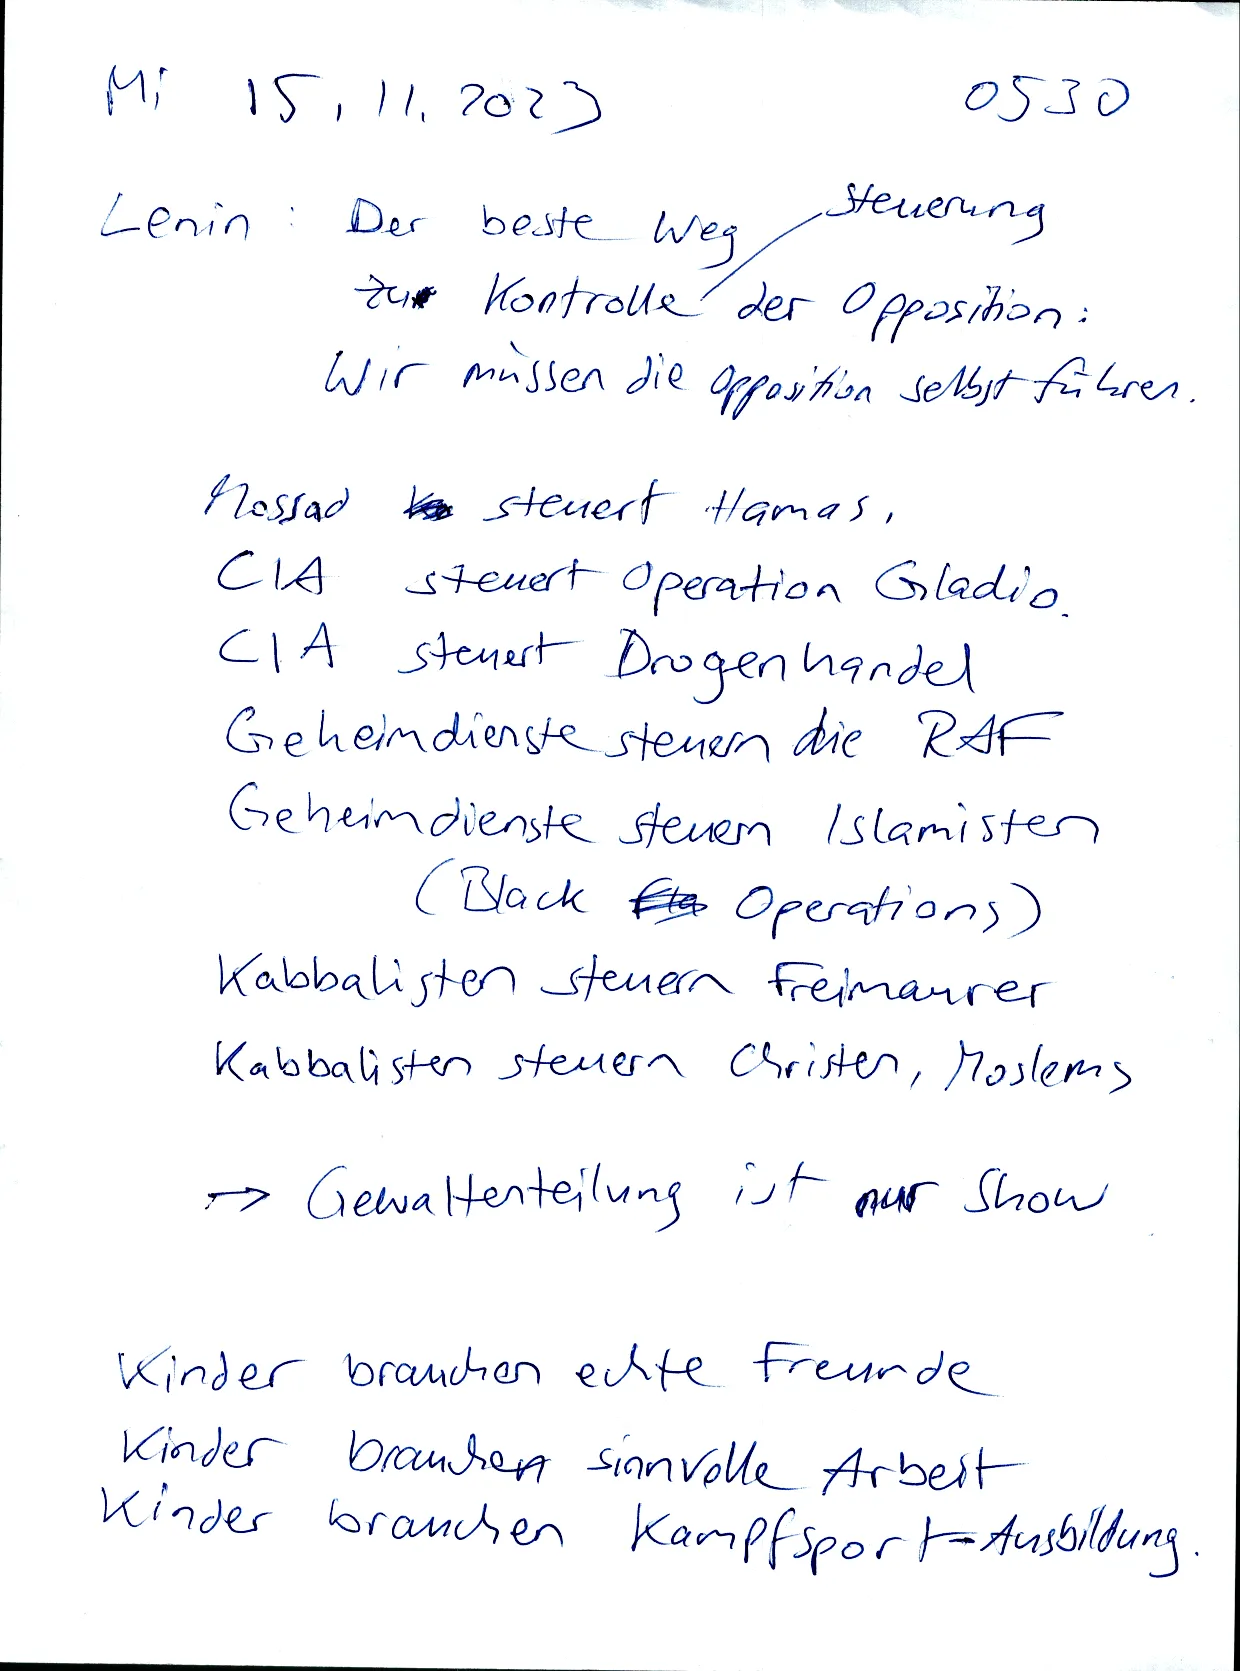 Mi 15.11.2023 0530
Lenin: Der beste Weg Steuerung
zur Kontrolle / der Opposition:
Wir müssen die Opposition selbst führen.
Mossad steuert Hamas,
CIA steuert Operation Gladio.
CIA steuert Drogenhandel
Geheimdienste steuern die RAF
Geheimdienste steuern Islamisten
(Black Operations)
Kabbalisten steuern Freimaurer
Kabbalisten steuern Christen, Moslems
→ Gewaltenteilung ist nur Show
Kinder brauchen echte Freunde
Kinder brauchen sinnvolle Arbeit
Kinder brauchen Kampfsport-Ausbildung.